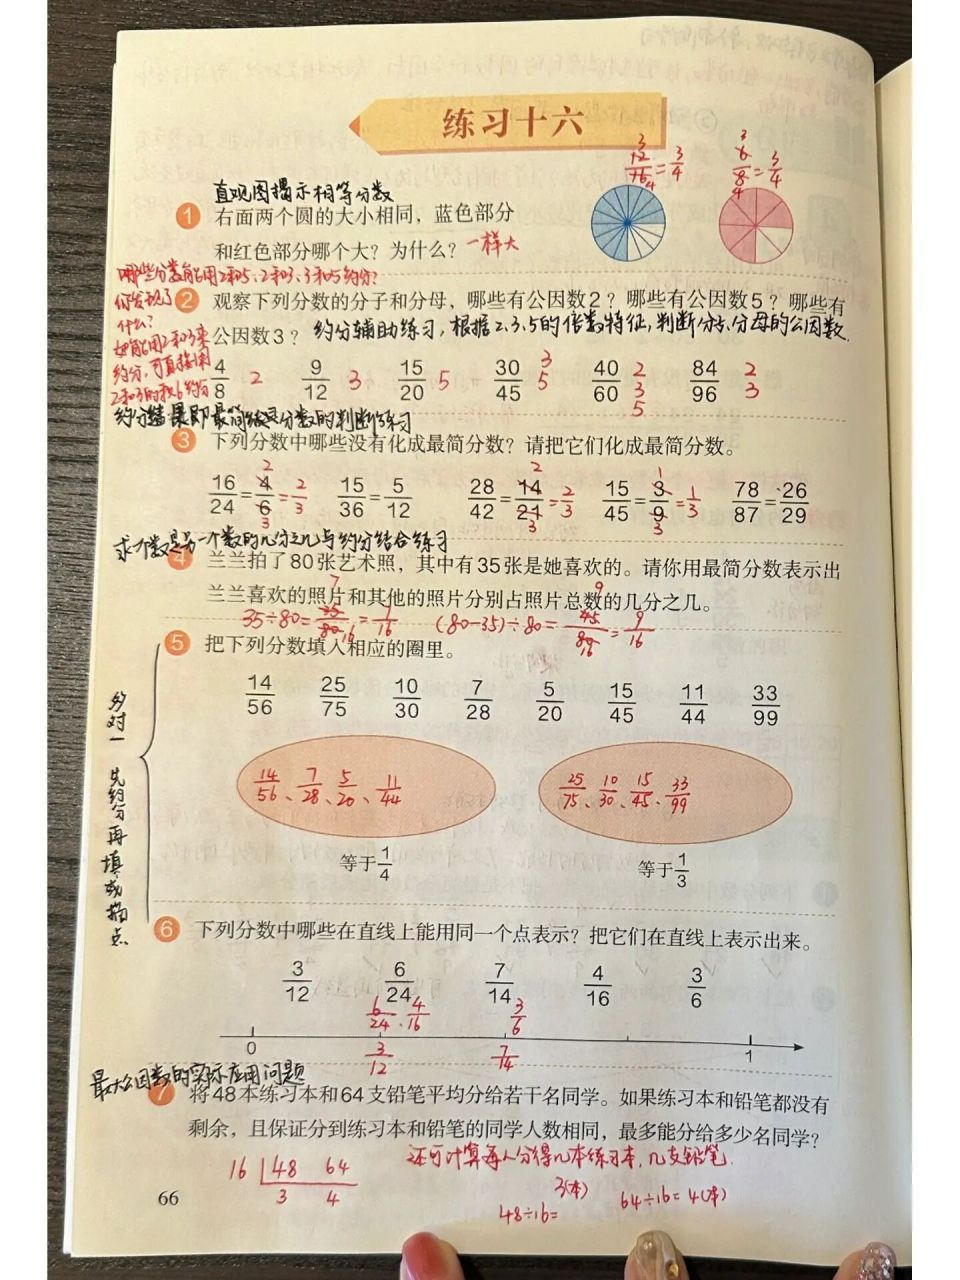 练习十六
3 12/16 4 = 3/4
3 6/8 4 = 3/4
直观图揭示相等分数
1 右面两个圆的大小相同，蓝色部分
和红色部分哪个大？为什么？ 一样大
哪些分数能用2和5、2和3、3和5约分？
你发现了
什么？
如能用2和3来
约分，可直接用
2和3的积6约分
2 观察下列分数的分子和分母，哪些有公因数2？哪些有公因数5？哪些有
公因数3？ 约分辅助练习，根据2、3、5的倍数特征，判断分子、分母的公因数.
4/8 2 9/12 3 15/20 5 30/45 3 5 40/60 2 3 5 84/96 2 3
约分结果即最简分数的判断练习
3 下列分数中哪些没有化成最简分数？请把它们化成最简分数。
16/24=4/6=2/3 15/36=5/12 28/42=14/21=2/3 15/45=3/9=1/3 78/87=26/29
求一个数是另一个数的几分之几与约分结合练习
4 兰兰拍了80张艺术照，其中有35张是她喜欢的。请你用最简分数表示出
兰兰喜欢的照片和其他的照片分别占照片总数的几分之几。
35÷80=35/80=7/16 (80-35)÷80=45/80=9/16
5 把下列分数填入相应的圈里。
14/56 25/75 10/30 7/28 5/20 15/45 11/44 33/99
14/56、7/28、5/20、11/44
25/75、10/30、15/45、33/99
等于1/4 等于1/3
先约分再填或描点
6 下列分数中哪些在直线上能用同一个点表示？把它们在直线上表示出来。
3/12 6/24 7/14 4/16 3/6
6/24 . 4/16 3/6
0 1
3/12 7/14
最大公因数的实际应用问题
7 将48本练习本和64支铅笔平均分给若干名同学。如果练习本和铅笔都没有
剩余，且保证分到练习本和铅笔的同学人数相同，最多能分给多少名同学？
还可计算每人分得几本练习本，几支铅笔.
16 48 64
3 4
48÷16= 3(本) 64÷16=4(本)
66